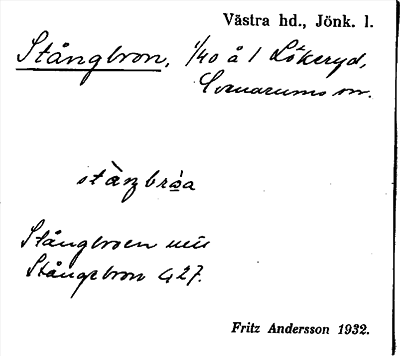 Västra hd., Jönk. l.
Stångbron, 1/40 å 1 Lökeryd,
Svenarums sn.
stàŋbrōa
Stångbroen
Stångebron G 27.
Fritz Andersson 1932.